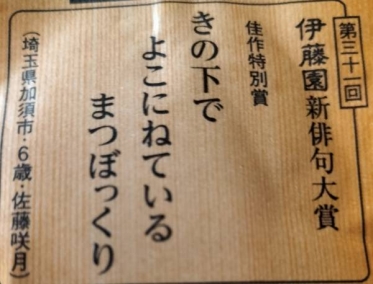 第三十一回
伊藤園新俳句大賞
佳作特別賞
きの下で
よこにねている
まつぼっくり
(埼玉県加須市・6歳・佐藤咲月)